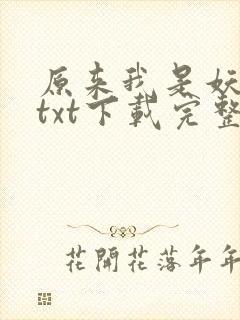 原来我是妖
txt下载完整
花開花落年年